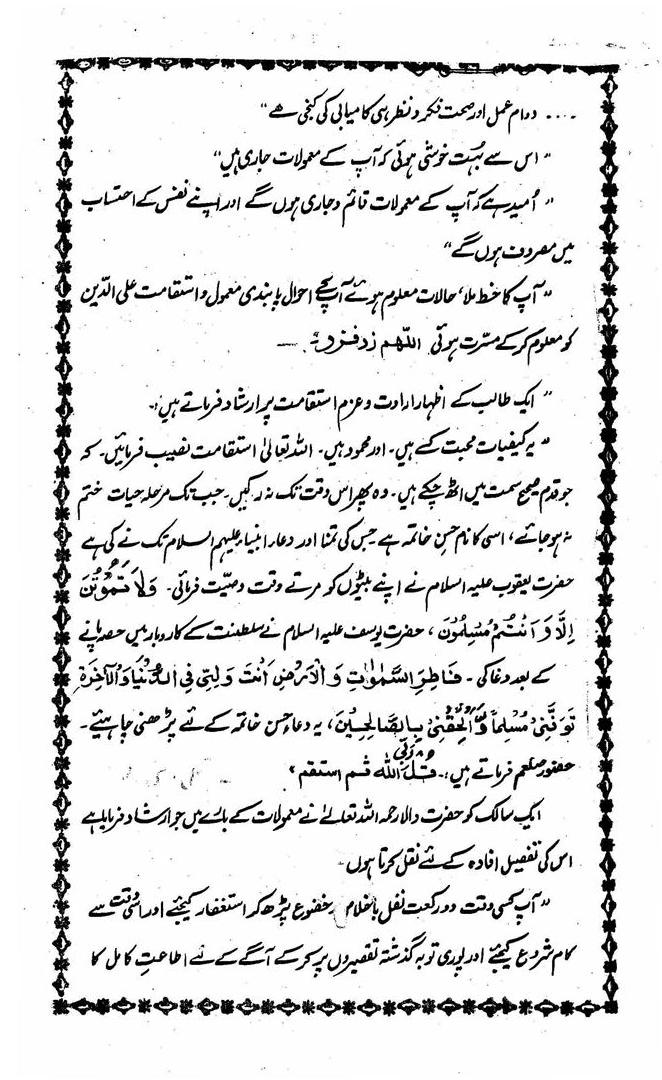 .... دوام عمل اور صحت فکر و نظر ہی کامیابی کی کنجی ہے"
" اس سے بہت خوشی ہوئی کہ آپ کے معمولات جاری ہیں"
" اُمید ہے کہ آپ کے معمولات قائم و جاری ہوں گے اور اپنے نفس کے احتساب
میں مصروف ہوں گے"
" آپ کا خط ملا، حالات معلوم ہوئے آپ کے احوال پابندی معمول و استقامت علی الدین
کو معلوم کرکے مسرت ہوئی اللّٰھم زد فزد۔ —
" ایک طالب کے اظہار ارادت و عزم استقامت پر ارشاد فرماتے ہیں:۔
" یہ کیفیات محبت کے ہیں۔ اور محمود ہیں۔ اللہ تعالیٰ استقامت نصیب فرمائیں۔ کہ
جو قدم صحیح سمت میں اٹھ چکے ہیں۔ وہ پھر اس وقت تک نہ رکیں۔ جب تک مرحلہ حیات ختم
نہ ہو جائے، اسی کا نام حسنِ خاتمہ ہے جس کی تمنا اور دعار انبیاء علیہم السلام تک نے کی ہے
حضرت یعقوب علیہ السلام نے اپنے بیٹوں کو مرتے وقت وصیت فرمائی۔ وَلَا تَمُوْتُنَّ
اِلَّا وَاَنْتُمْ مُسْلِمُوْنَ، حضرت یوسف علیہ السلام نے سلطنت کے کاروبار میں حصہ پانے
کے بعد دعا کی۔ فَاطِرَ السَّمٰوٰاتِ وَالْاَرْضِ اَنْتَ وَلِیّٖ فِی الدُّنْیَا وَالْآخِرَةِ
تَوَفَّنِیْ مُسْلِماً وَّاَلْحِقْنِیْ بِالصَّالِحِیْنَ، یہ دعاء حسن خاتمہ کے لئے پڑھنی چاہیئے۔
حضور صلعم فرماتے ہیں:۔ قُلْ رَبِّیَ اللّٰہ ثم استقم"
ایک سالک کو حضرت والا رحمہ اللہ تعالےٰ نے معمولات کے بارے میں جو ارشاد فرمایا ہے
اس کی تفصیل افادہ کے لئے نقل کرتا ہوں۔
" آپ کسی وقت دو رکعت نفل با خلاص خضوع پڑھ کر استغفار کیجئے اور اسی وقت سے
کام شروع کیجئے اور پوری توبہ گذشتہ تقصیروں پر کرکے آگے کے لئے اطاعتِ کامل کا